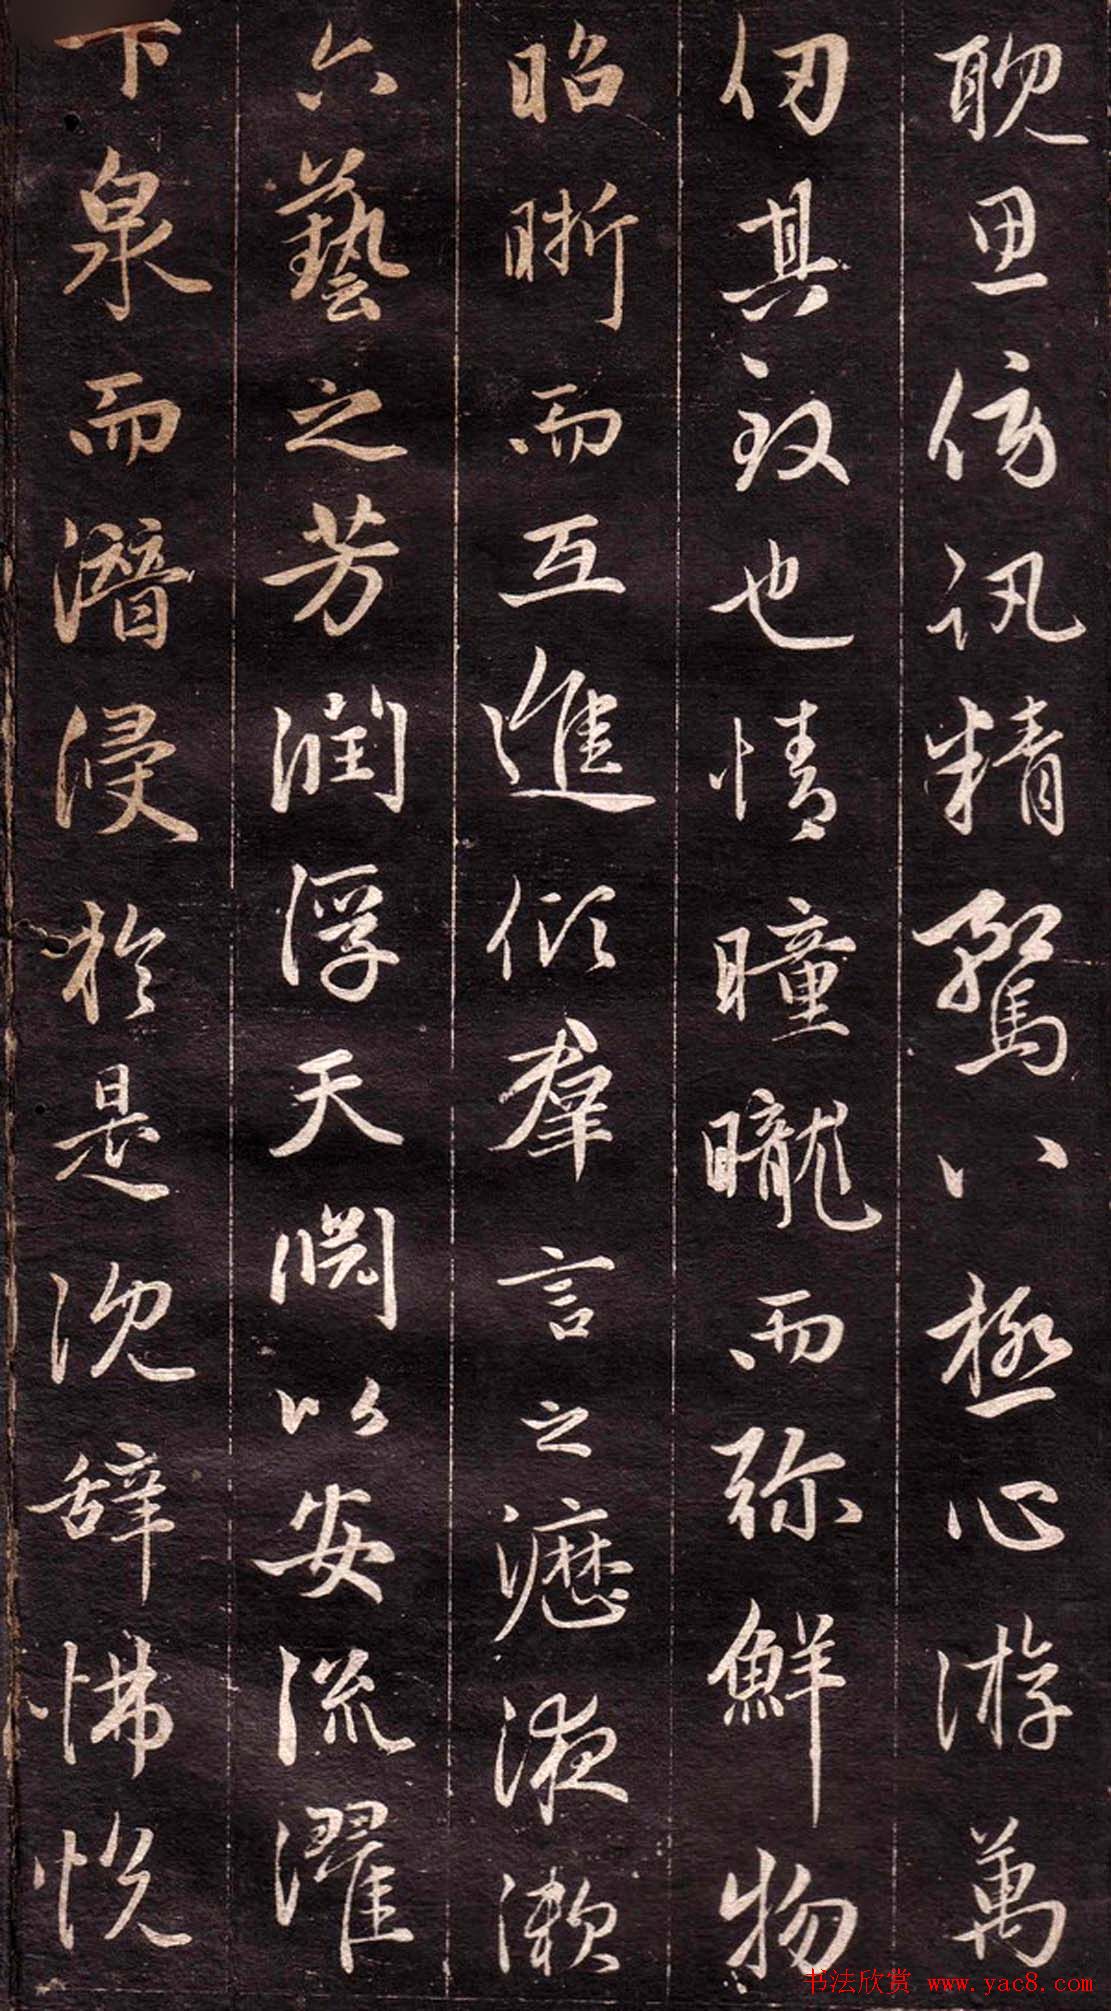 耽思傍訊精騖八極心游萬
仞其致也情曈曨而彌鮮物
昭晣而互進傾羣言之瀝液漱
六藝之芳潤浮天淵以安流濯
下泉而潛浸於是沈辭怫悅
书法欣赏 www.yac8.com